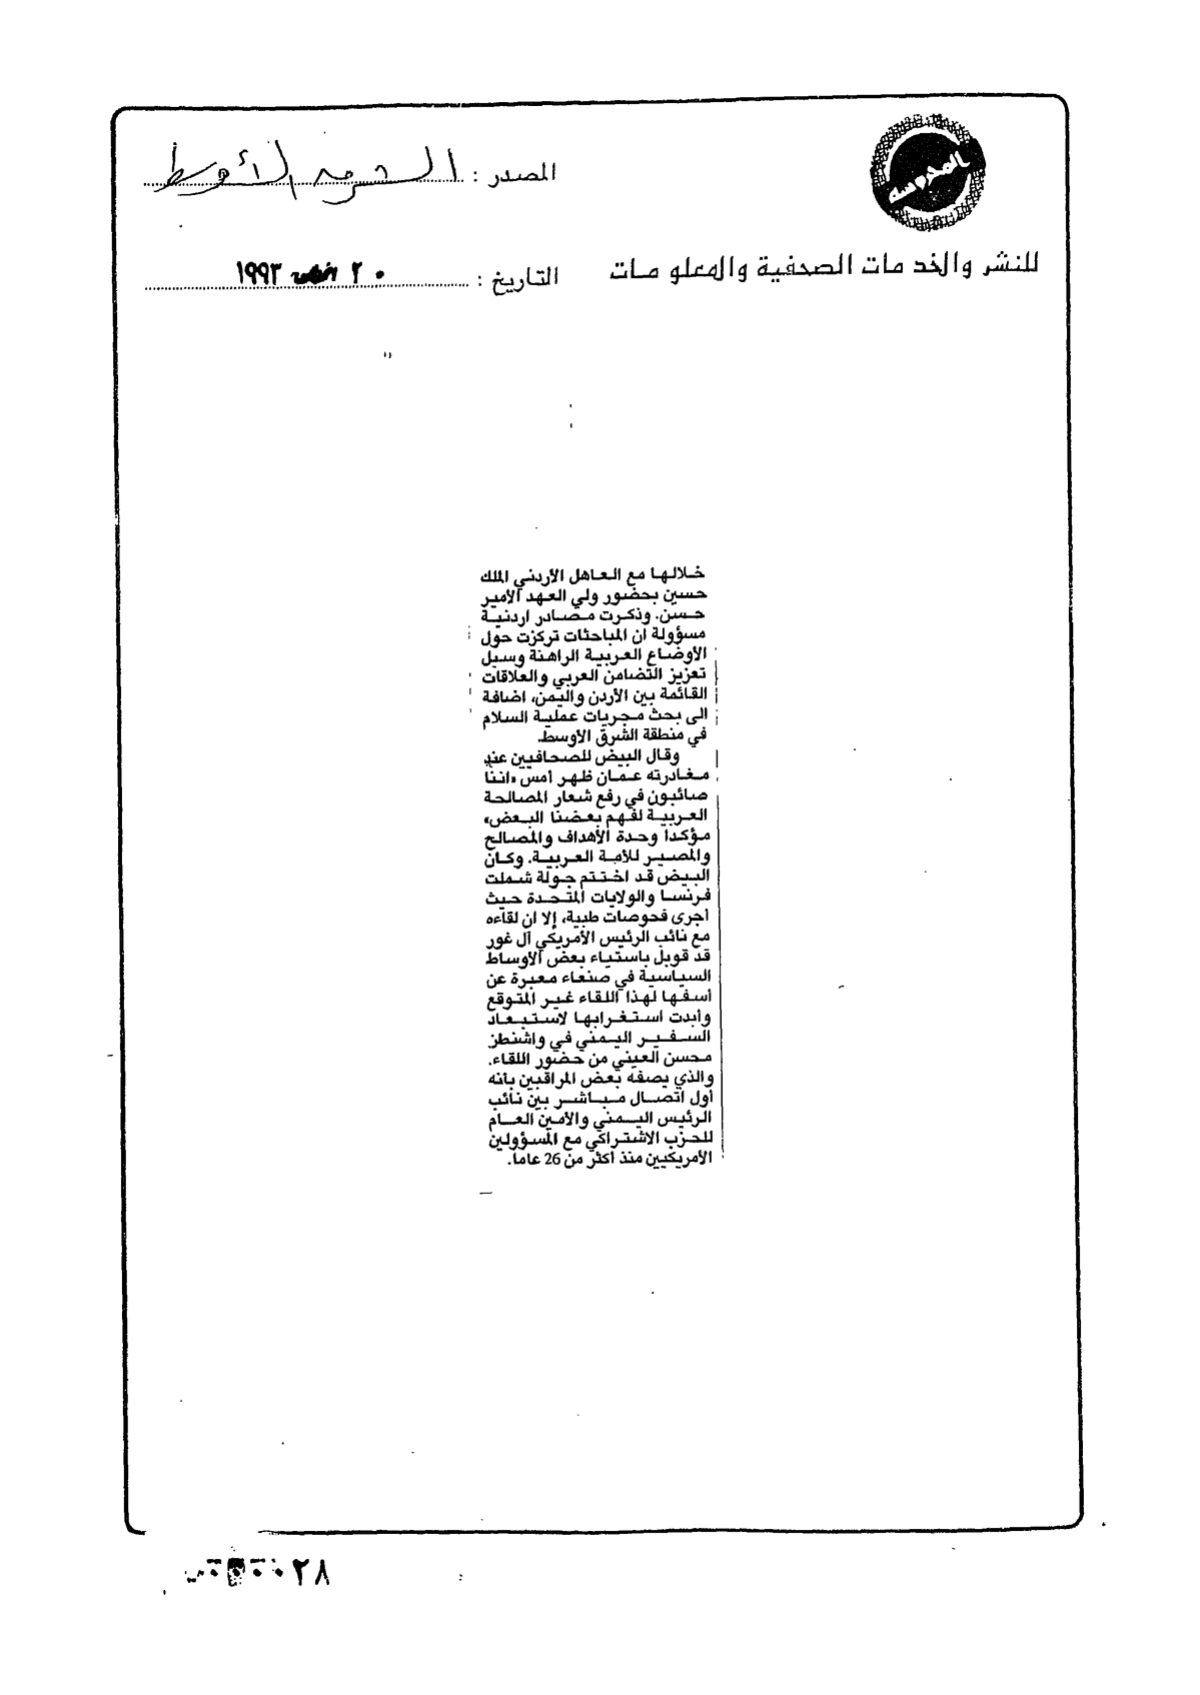 المحروسة
المصدر : الشرق الأوسط
للنشر والخدمات الصحفية والمعلومات
التاريخ : ٢٠ ١٩٩٣
خلالها مع العاهل الأردني الملك
حسين بحضور ولي العهد الأمير
حسن. وذكرت مصادر اردنية
مسؤولة ان المباحثات تركزت حول
الأوضاع العربية الراهنة وسبل
تعزيز التضامن العربي والعلاقات
القائمة بين الأردن واليمن، اضافة
الى بحث مجريات عملية السلام
في منطقة الشرق الأوسط.
وقال البيض للصحافيين عند
مغادرته عمان ظهر أمس «اننا
صائبون في رفع شعار المصالحة
العربية لفهم بعضنا البعض»
مؤكداً وحدة الأهداف والمصالح
والمصير للأمة العربية. وكان
البيض قد اختتم جولة شملت
فرنسا والولايات المتحدة حيث
أجرى فحوصات طبية، إلا ان لقاءه
مع نائب الرئيس الأمريكي آل غور
قد قوبل باستياء بعض الأوساط
السياسية في صنعاء معبرة عن
أسفها لهذا اللقاء غير المتوقع
وأبدت استغرابها لاستبعاد
السفير اليمني في واشنطن
محسن العيني من حضور اللقاء.
والذي يصفه بعض المراقبين بأنه
أول اتصال مباشر بين نائب
الرئيس اليمني والأمين العام
للحزب الاشتراكي مع المسؤولين
الأمريكيين منذ أكثر من 26 عاماً.
٢٨